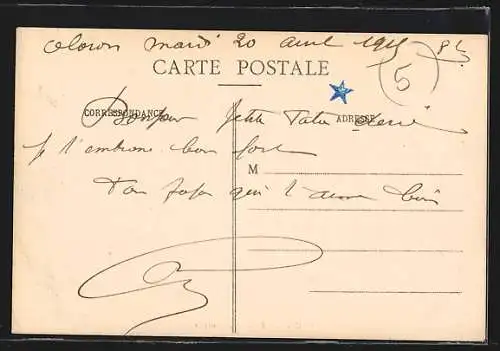 oloron mardi 20 avril 1915 8h
5
CARTE POSTALE
CORRESPONDANCE
ADRESSE
Bonjour petite
je t'embrasse bien fort
M
Ton papa qui t'aime bien